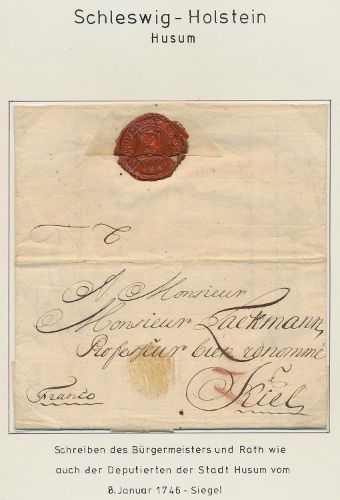 Schleswig-Holstein
Husum
A Monsieur
Monsieur Lackmann,
Professeur bien renommé
à
Kiel
Franco
Schreiben des Bürgermeisters und Rath wie
auch der Deputierten der Stadt Husum vom
8. Januar 1746 - Siegel